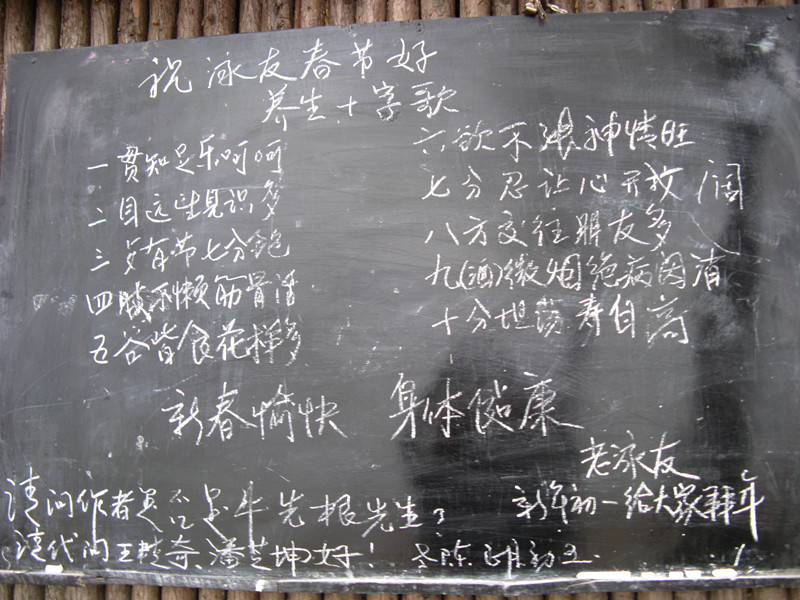 祝泳友春节好
养生十字歌
一贯知足乐呵呵
二目远眺见识多
三歺有节七分饱
四肢不懒筋骨活
五谷皆食花样多
六欲不浪神情旺
七分忍让心开放 阔
八方交往朋友多
九(酒)微烟绝病因消
十分坦荡寿自高
新春愉快 身体健康
老泳友
新年初一给大家拜年
请问作者是不是牛先根先生?
请代问王 奇、潘芝坤好! 老陈 正月初五